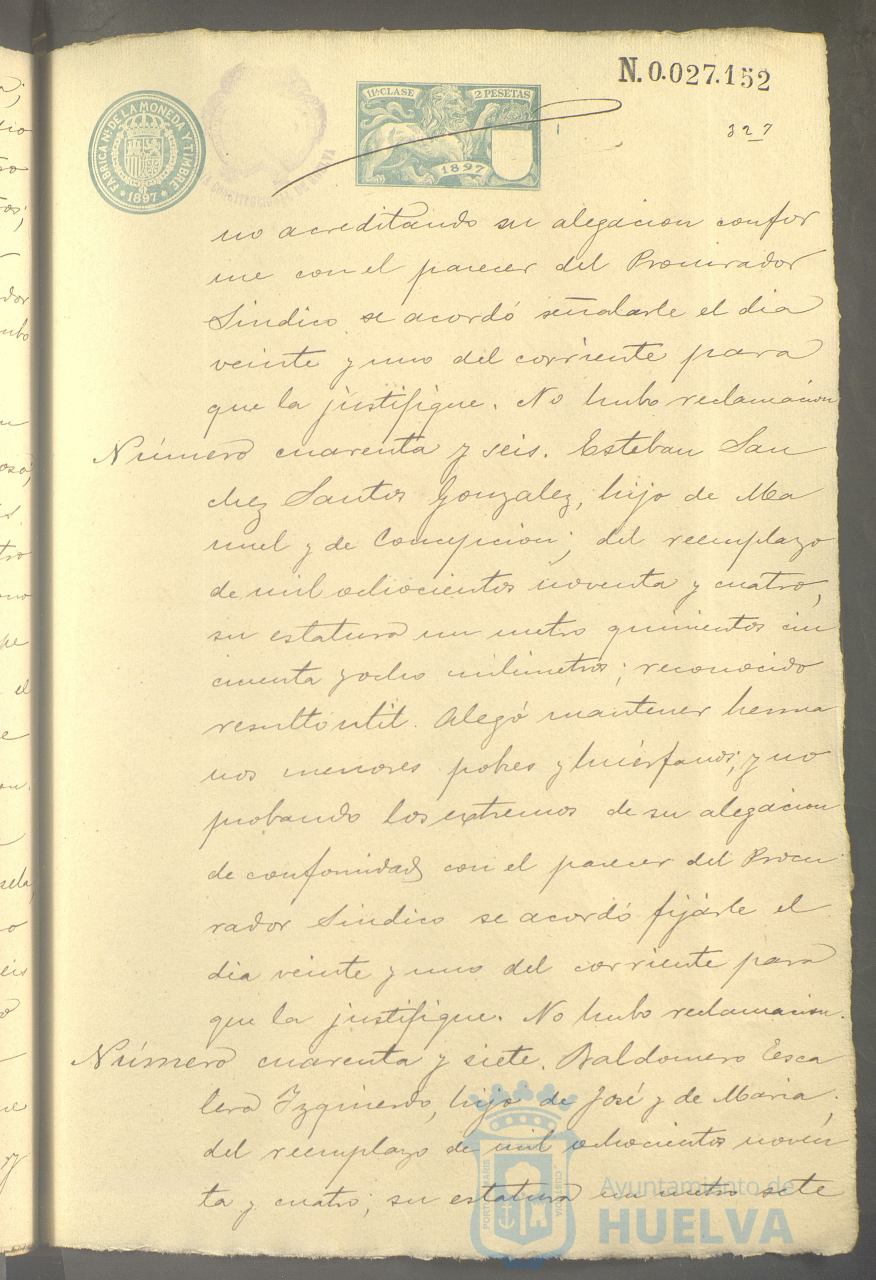 N. 0.027.152
11ª CLASE 2 PESETAS
1897
FÁBRICA NAL. DE LA MONEDA Y TIMBRE
1897
327
no acreditando su alegacion confor
me con el parecer del Procurador
Sindico se acordó señalarle el dia
veinte y uno del corriente para
que la justifique. No hubo reclamacion
Número cuarenta y seis. Esteban San
chez Santos Gonzalez, hijo de Ma
nuel y de Concepcion, del reemplazo
de mil ochocientos noventa y cuatro,
su estatura un metro quinientos cin
cuenta y ocho milimetros; reconocido
resultó util. Alegó mantener herma
nos menores pobres y huérfanos; y no
probando los extremos de su alegacion
de conformidad con el parecer del Procu
rador Sindico se acordó fijarle el
dia veinte y uno del corriente para
que la justifique. No hubo reclamacion.
Número cuarenta y siete. Baldomero Esca
lera Izquierdo, hijo de José y de Maria,
del reemplazo de mil ochocientos noven
ta y cuatro; su estatura un metro sete
Ayuntamiento de
HUELVA